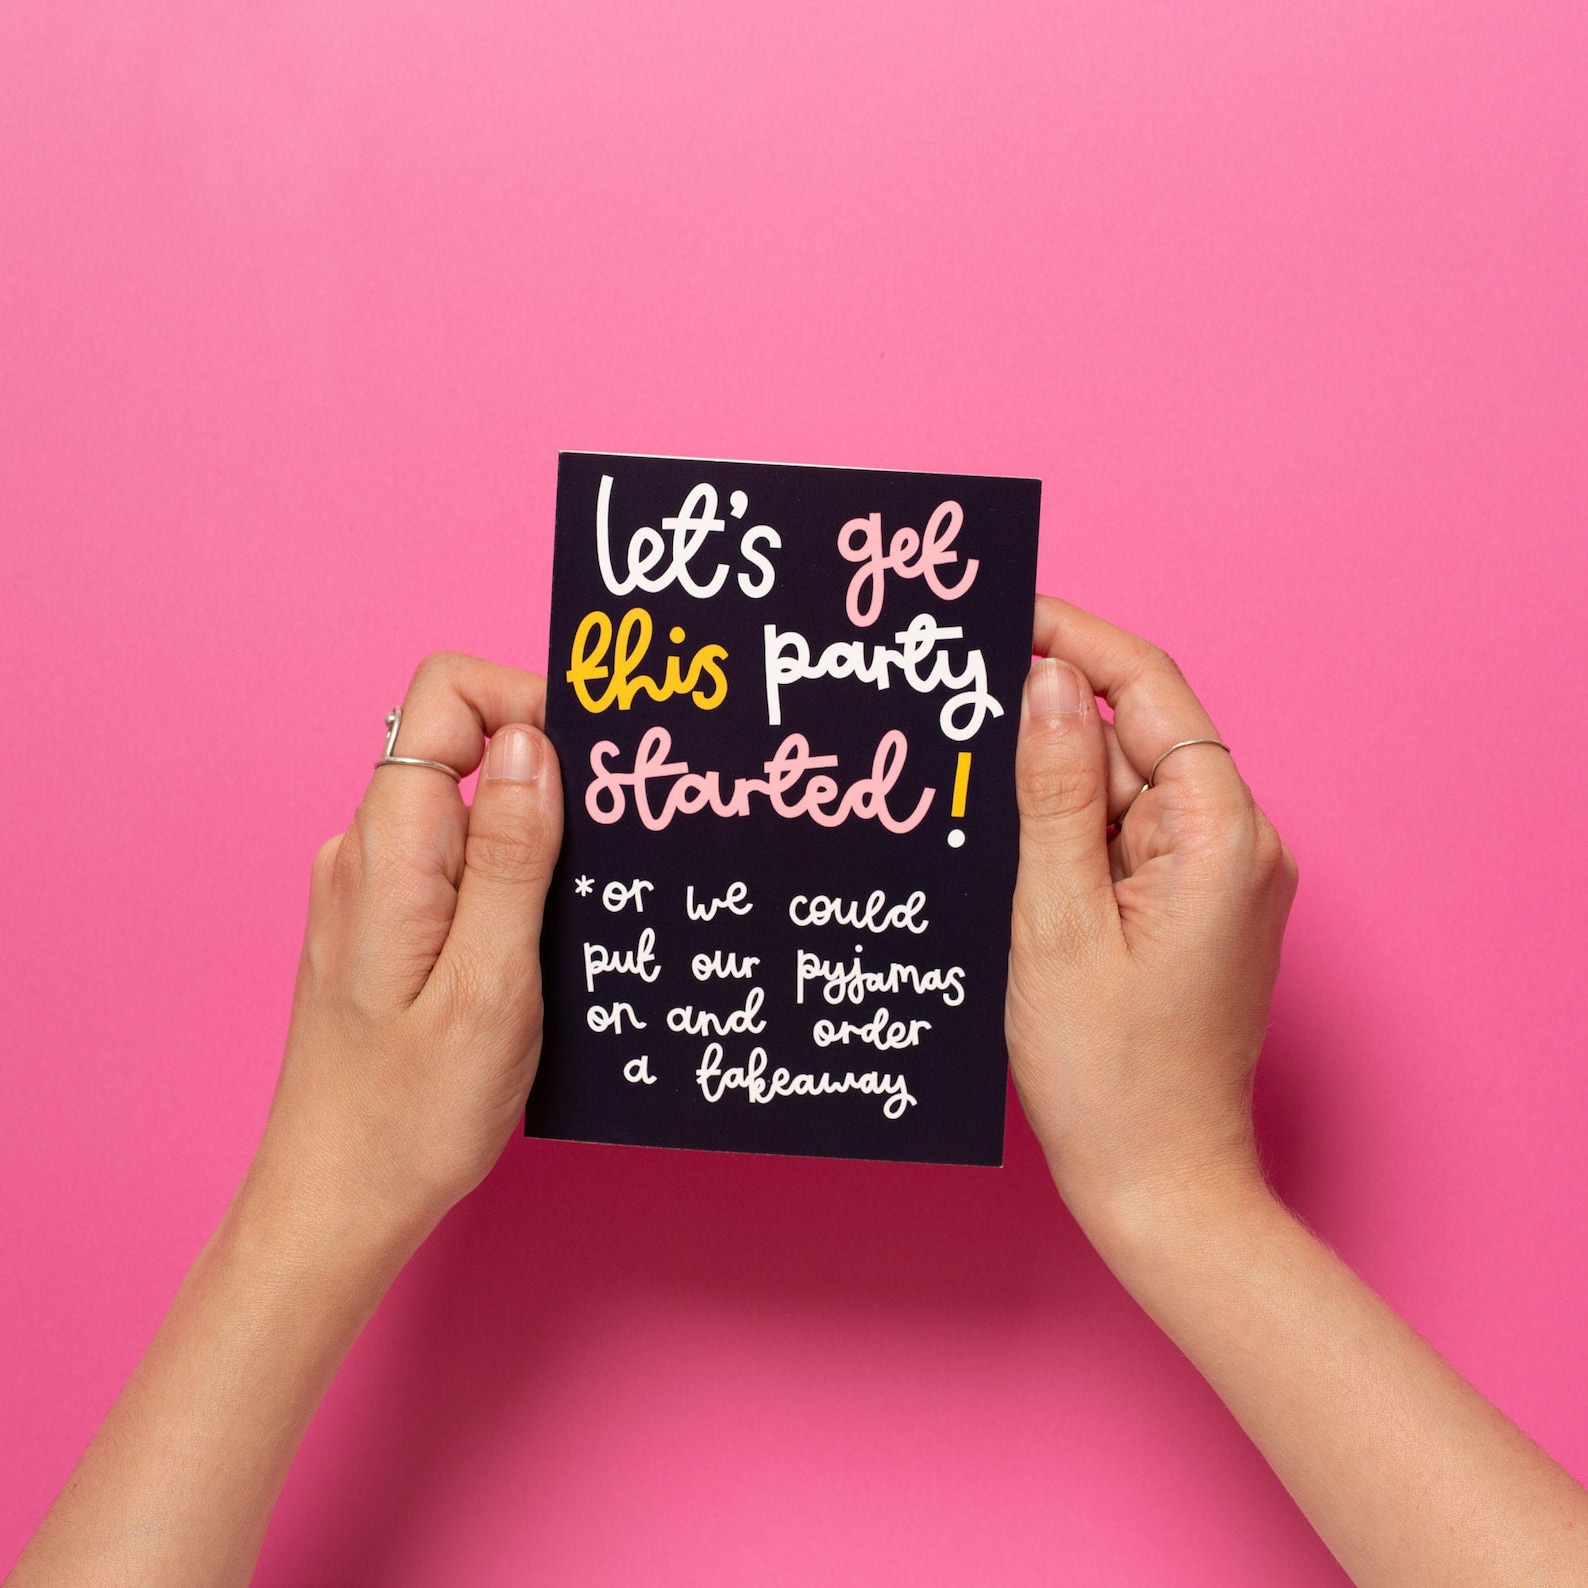 let's get
this party
started!
*or we could
put our pyjamas
on and order
a takeaway